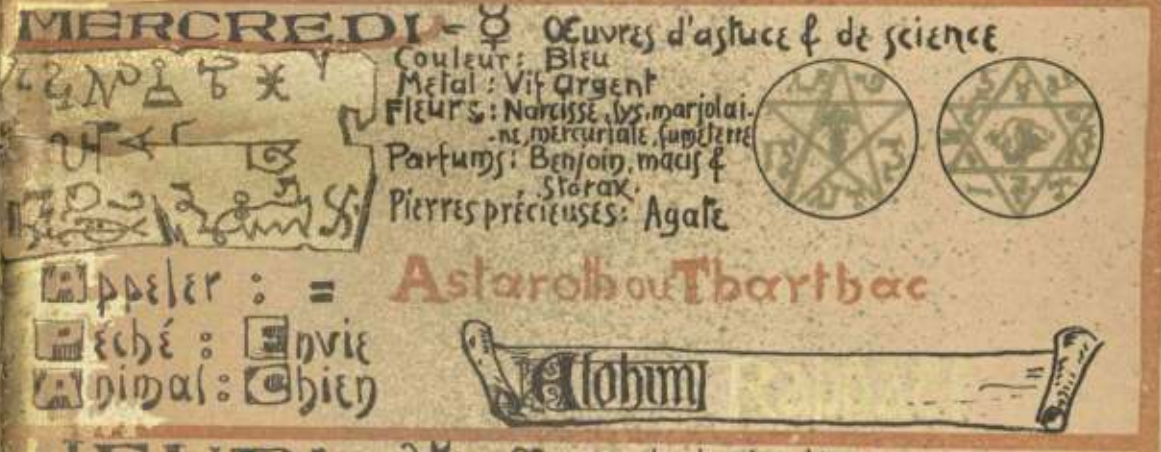 MERCREDI - ☿ Œuvres d'astuce & de science
Couleur: Bleu
Metal: Vif Argent
Fleurs: Narcisse, lys, marjolai-
-ne, mercuriale, fumeterre
Parfums: Benjoin, macis &
storax.
Pierres précieuses: Agate
Appeler : = Astaroth ou Tharthac
Péché : Envie
Animal: Chien
Elohim